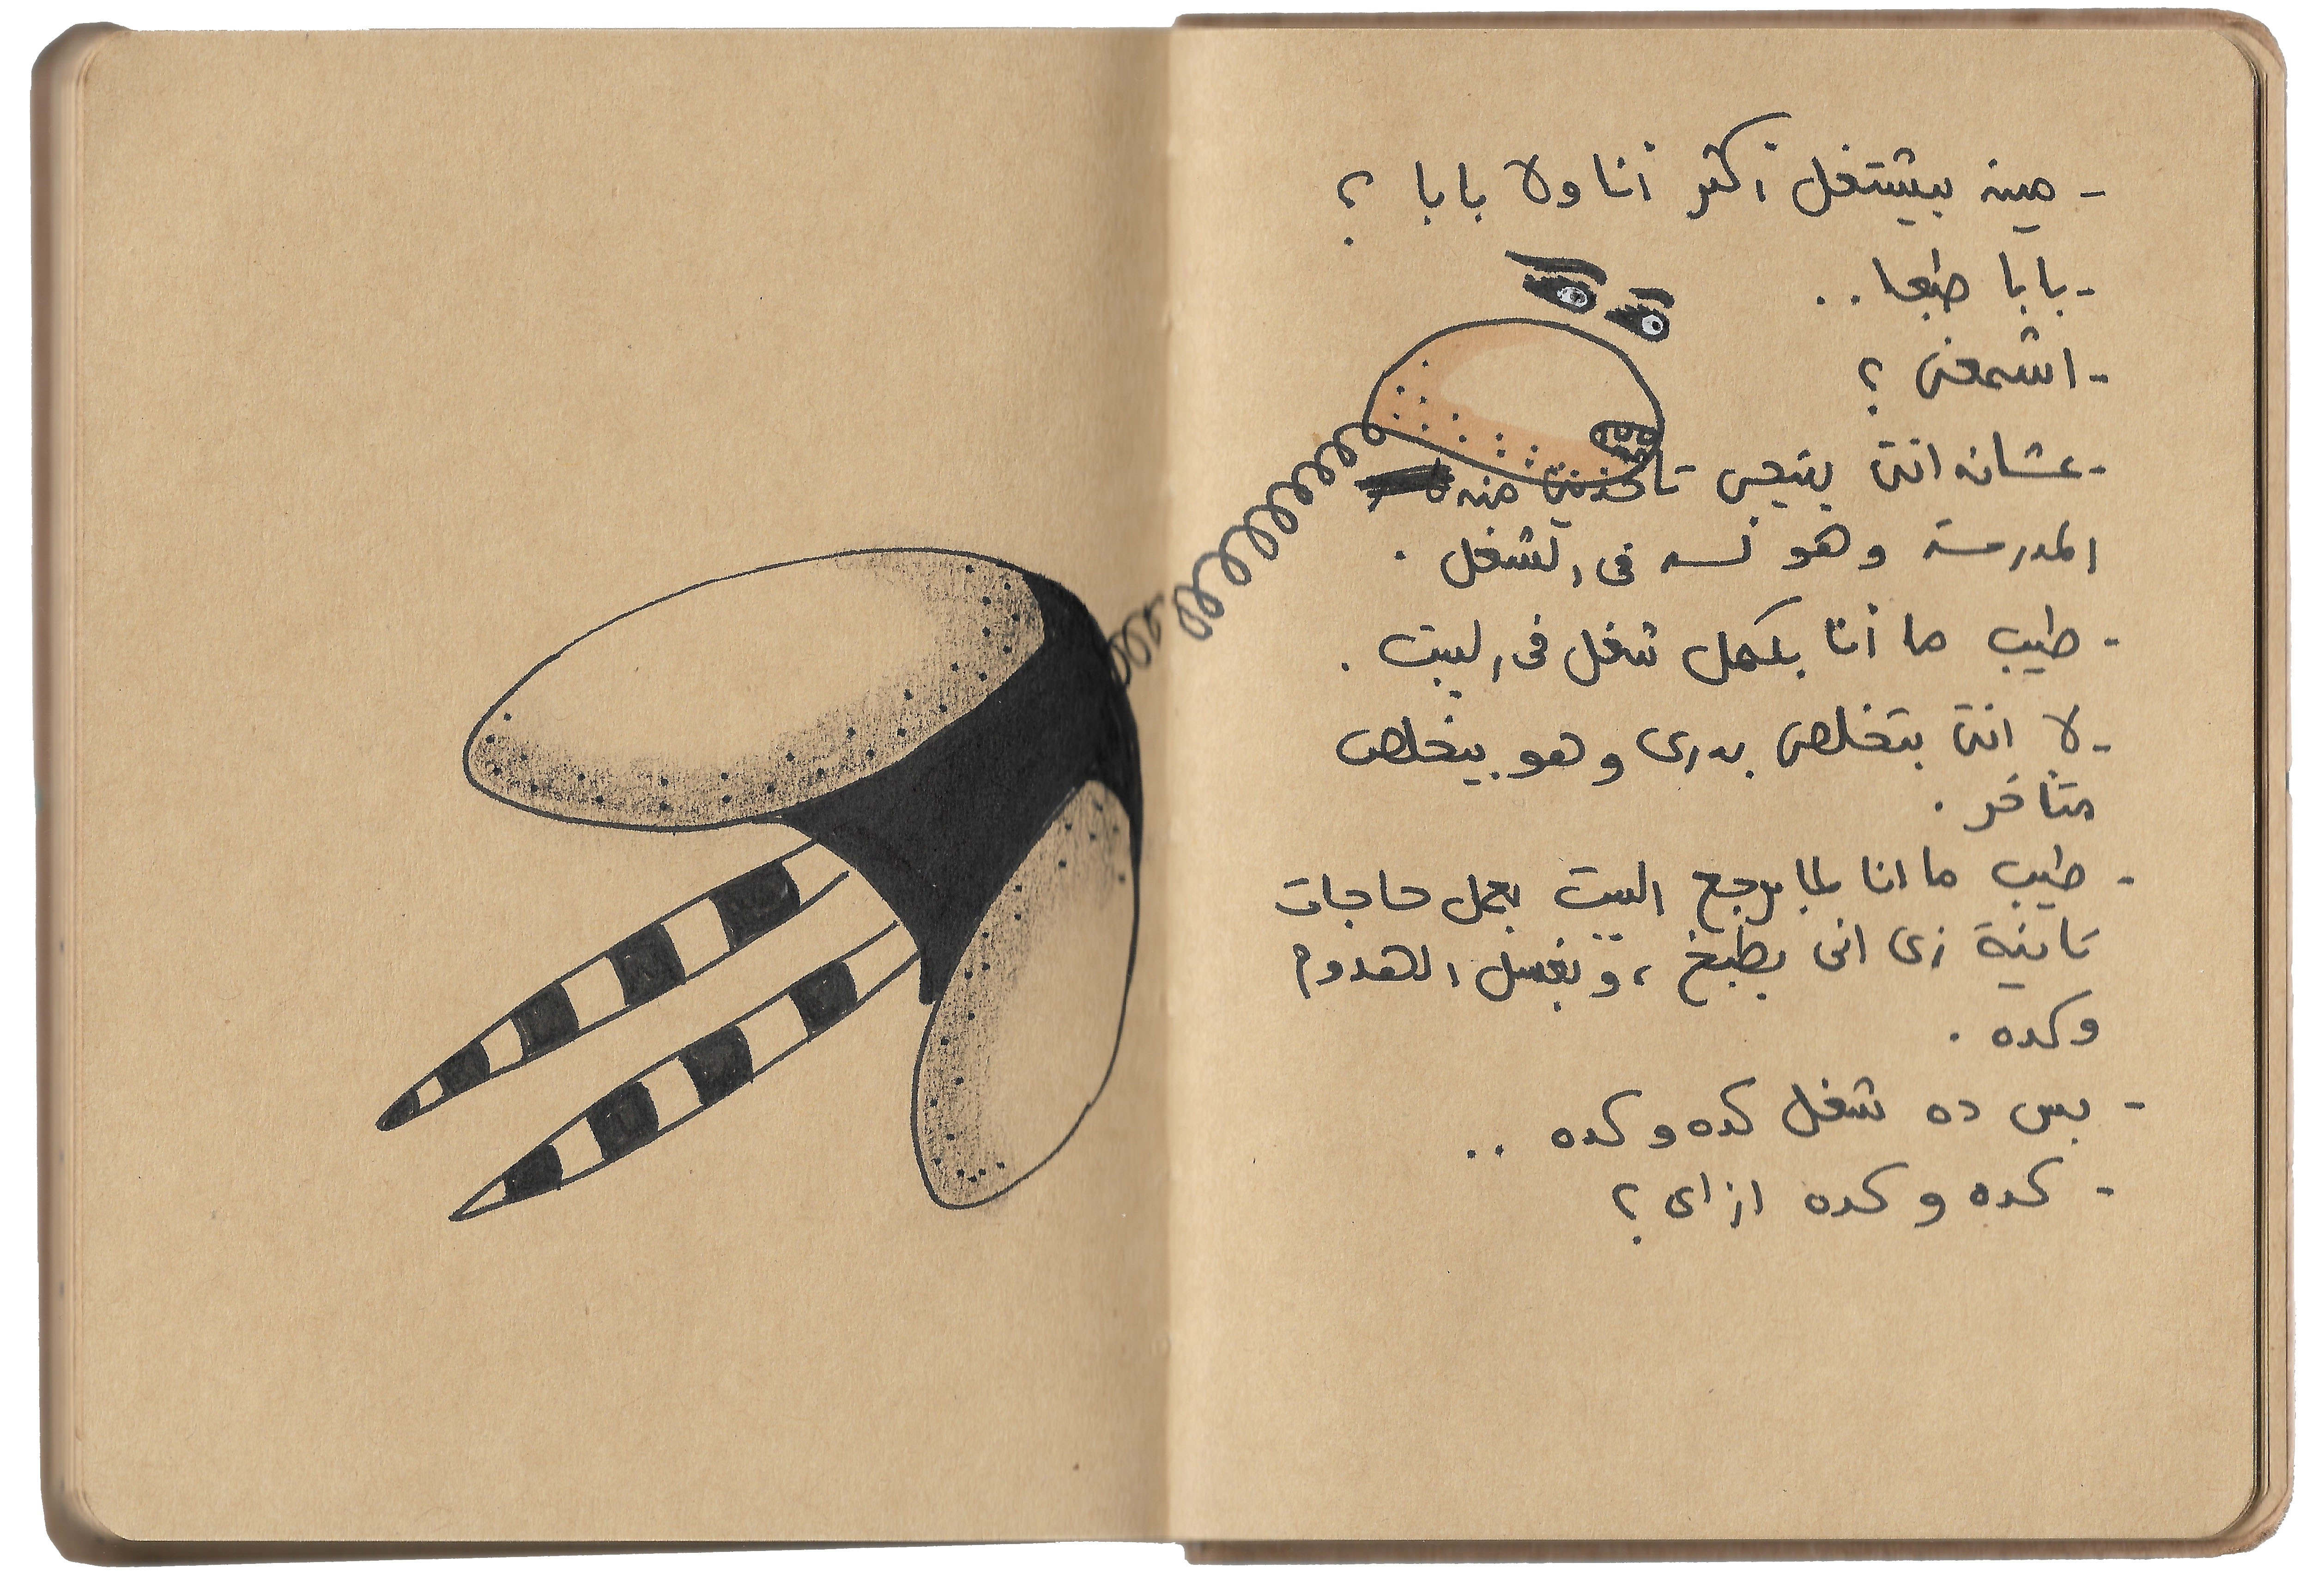 - مين بيشتغل أكتر أنا ولا بابا ؟
- بابا طبعا ..
- اشمعنى ؟
- عشان انتى بتيجى تاخدينى من
المدرسة وهو لسه فى الشغل .
- طيب ما أنا بكمل شغل فى البيت .
- لا انتى بتخلصى بدرى وهو بيخلص
متأخر .
- طيب ما انا لما برجع البيت بعمل حاجات
تانية زى انى بطبخ ، وبغسل الهدوم
وكده .
- بس ده شغل كده وكده ..
- كده وكده ازاى ؟